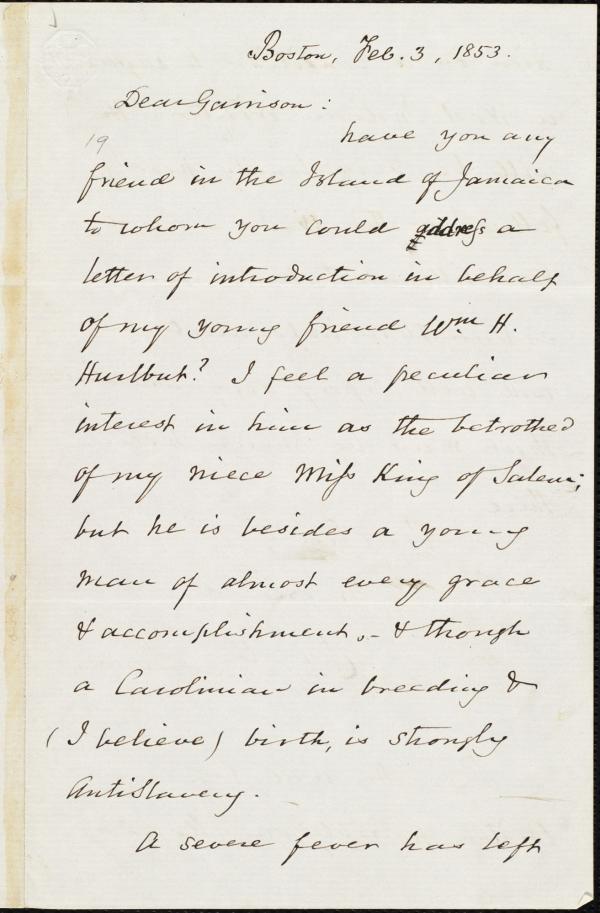 Boston, Feb. 3, 1853.
Dear Garrison:
19
have you any
friend in the Island of Jamaica
to whom you could address a
letter of introduction in behalf
of my young friend Wm H.
Hurlbut? I feel a peculiar
interest in him as the betrothed
of my niece Miss King of Salem;
but he is besides a young
man of almost every grace
& accomplishment, - & though
a Carolinian in breeding &
(I believe) birth, is strongly
AntiSlavery.
A severe fever has left